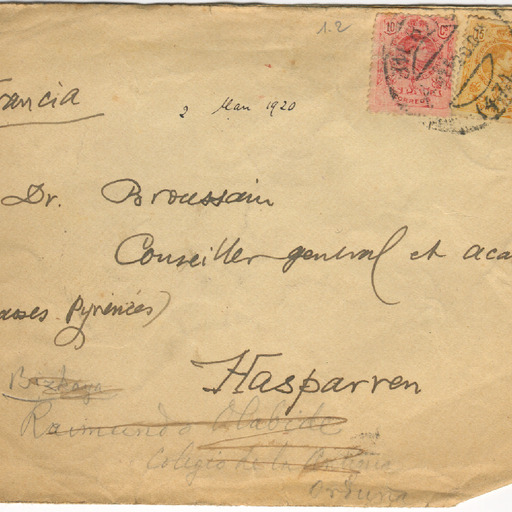 1.2
10 Cs
CORREOS
rancia
2 Mars 1920
Dr. Broussain
Conseiller general et aca
asses Pyrénées)
Hasparren
Bizkaya
Raimundo Olabide
Colegio de la
Orduña